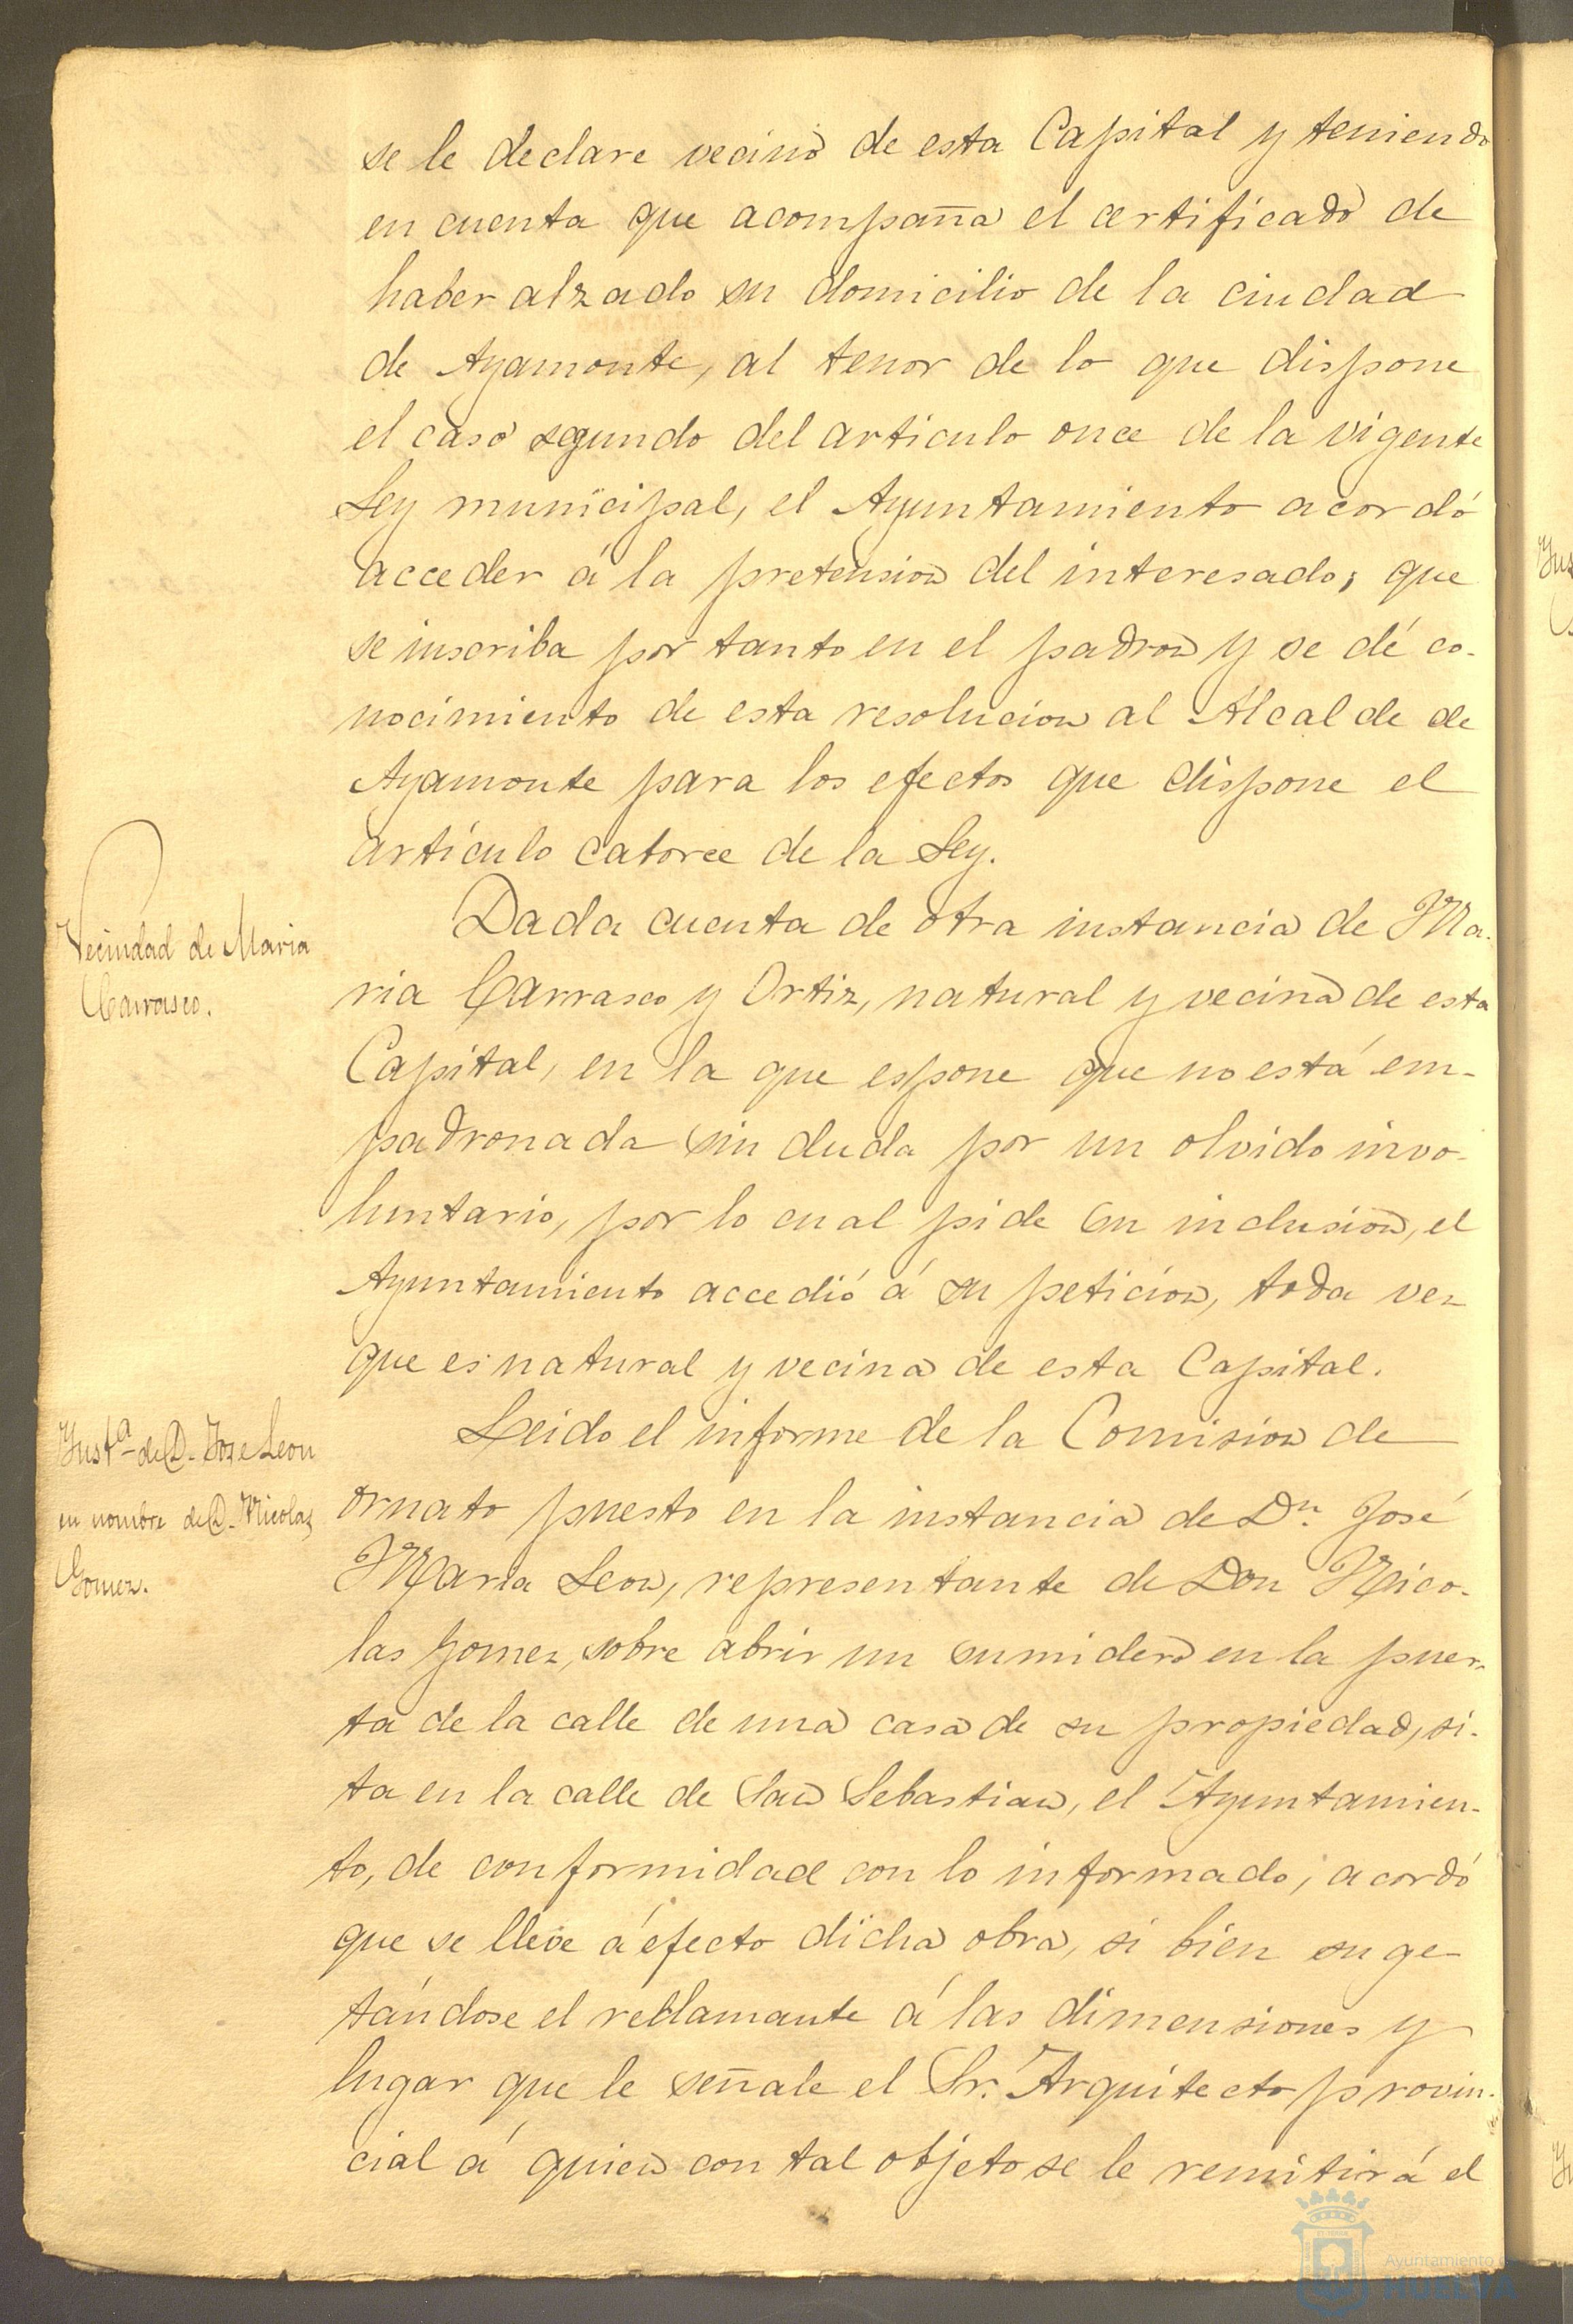 se le declare vecino de esta Capital y teniendo
en cuenta que acompaña el certificado de
haber alzado su domicilio de la ciudad
de Ayamonte, al tenor de lo que dispone
el caso segundo del articulo once de la vigente
Ley municipal, el Ayuntamiento acordó
acceder á la pretension del interesado; que
se inscriba por tanto en el padron y se dé co-
nocimiento de esta resolucion al Alcalde de
Ayamonte para los efectos que dispone el
artículo catorce de la Ley.
Vecindad de Maria
Carrasco.
Dada cuenta de otra instancia de Ma-
ria Carrasco y Ortiz, natural y vecina de esta
Capital, en la que espone que no está em-
padronada sin duda por un olvido invo-
luntario, por lo cual pide su inclusion, el
Ayuntamiento accedió á su peticion, toda vez
que es natural y vecina de esta Capital.
Instª de D. Jose Leon
en nombre de D. Nicolas
Gomez.
Leido el informe de la Comision de
ornato puesto en la instancia de Dn. José
Maria Leon, representante de Don Nico-
las Gomez, sobre abrir un sumidero en la puer-
ta de la calle de una casa de su propiedad, si-
ta en la calle de San Sebastian, el Ayuntamien-
to, de conformidad con lo informado, acordó
que se lleve á efecto dicha obra, si bien suge-
tándose el reclamante á las dimensiones y
lugar que le señale el Sr. Arquitecto provin-
cial á quien con tal objeto se le remitirá el
Ayuntamiento de
HUELVA